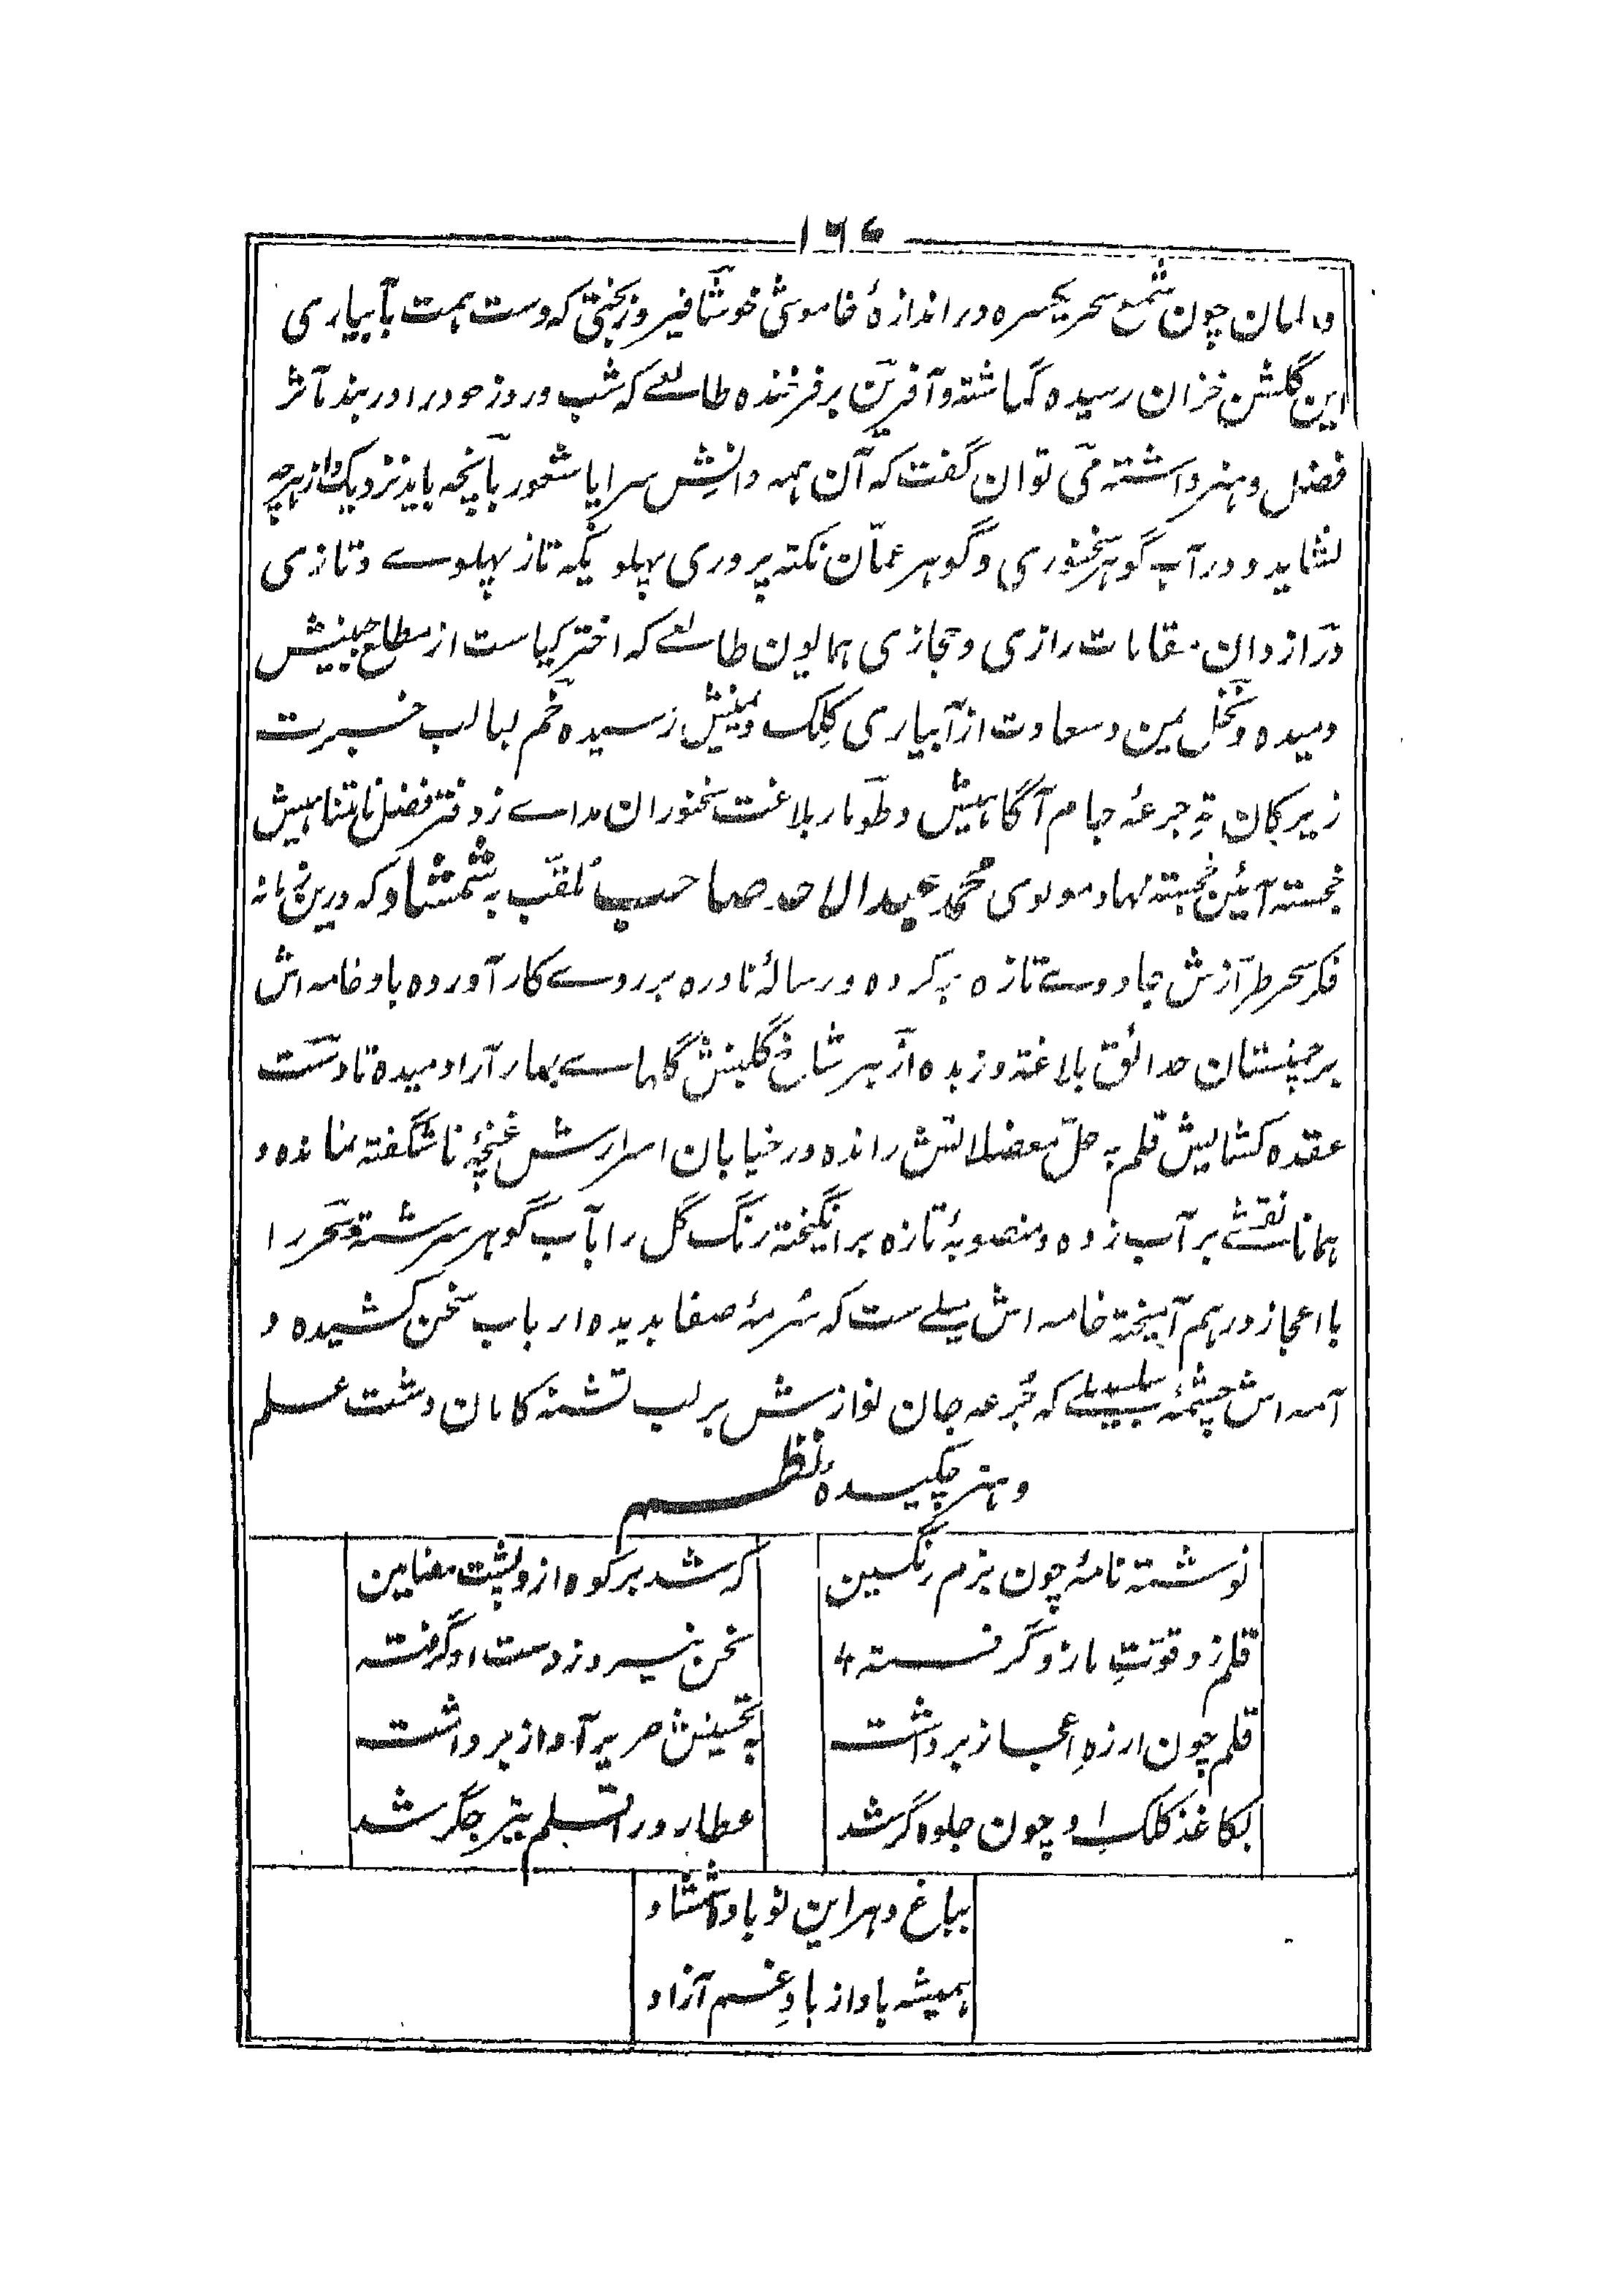 ۱۶۷
و امان چون شمع سحر یکسره در اندازهٔ خاموشی خوشا فیروزبختی که دست همت بآبیاری
این گلشن خزان رسیده گماشته و آفرین بر فرخنده طالعے که شب و روز خود را در بند مآثر
فضل و هنر داشته می توان گفت که آن همه دانش سراپا شعور بآنچه باید نزدیک و از هرچه
نشاید دور آب گوهر سخنوری و گوهر عمّان نکته پروری پهلو یکه تاز پهلوے و تازی
و رازدان مقامات رازی و حجازی همایون طالعے که اختر کیاست از مطلع جبینش
دمیده و نخل یمن و سعادت از آبیاری کلک و مینش رسیده خم لبالب خبرت
زیرکان تهِ جرعهٔ جام آگاهیش و طومار بلاغت سخنوران مداے ز دفتر فضل نامتناهیش
خجسته آئین خجسته نهاد مولوی محمد عبدالاحد صاحب ملقّب به شمشاد که درین زمانه
فکر سحر طرازش جادوے تازه پرکرده و رسالهٔ نادره بر روے کار آورده باد خامه اش
بر چمنستان حدائق البلاغة وزیده از هر شاخ گلبنش گلهاے بهار آرا دمیده تا دست
عقده کشایش قلم به حلّ معضلاتش رانده در خیابان اسرارش غنچهٔ ناشگفته نمانده و
همانا نقشے بر آب زده و منصوبهٔ تازه برانگیخته رنگ گل را بآب گوهر سرشته و سحر را
با اعجاز درهم آمیخته خامه اش میلے ست که سُرمهٔ صفا بدیده ارباب سخن کشیده و
آمه اش چشمهٔ سلسبیلے که جُرعه جان نوازش بر لب تشنه کامان دشت علم
و هنر چکیده نظم
نوشته نامهٔ چون بزم رنگین
که شد بر کوه از و پشت مضامین
قلم زو قوّتِ بازو گرفته
سخن نیرو ز دست او گرفته
قلم چون ارزهِ اعجاز برداشت
به تحسینش صریر آواز برداشت
بکاغذ کلکِ او چون جلوه گر شد
عطارد را قلم تیر جگر شد
بباغ دهر این نوباوهٔ شمشاد
همیشه باد از بادِ غم آزاد